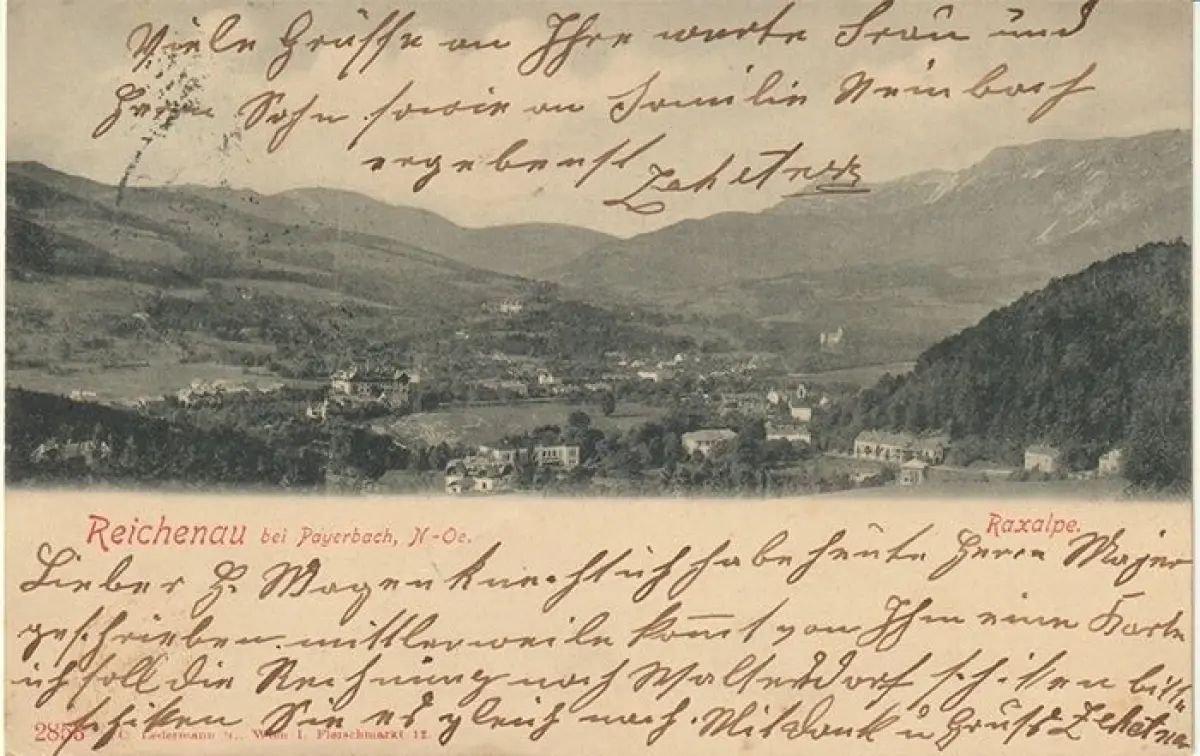 Viele Grüsse an Ihre werte Frau und
Herrn Sohn sowie an Familie Steinbach
ergebenst Zehetner
Reichenau bei Payerbach, N-Oe.
Raxalpe.
Lieber H. Wagenknecht ich habe heute Herrn Majer
geschrieben mittlerweile kom̅t von Ihm eine Karte
ich soll die Rechnung nach Waltersdorf schiken bitte
schiken Sie es gleich nach. Mit Dank u Gruss Zehetner
2853 C. Ledermann jr., Wien I. Fleischmarkt 12.